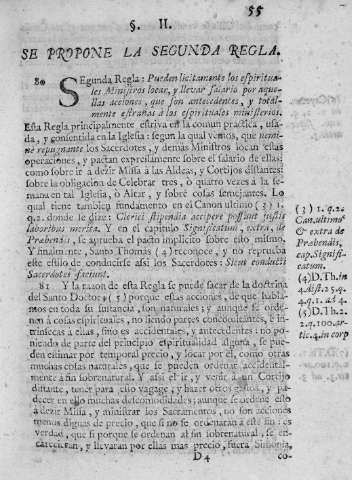 55
§. II.
SE PROPONE LA SEGUNDA REGLA.
80 SEgunda Regla: Pueden licitamente los espiritua-
les Ministros locar, y llevar salario por aque-
llas acciones, que son antecedentes, y total-
mente estrañas à los espirituales ministerios.
Esta Regla principalmente estriva en la comun practica, usa-
da, y consentida en la Iglesia: segun la qual vemos, que nemi-
nè repugnante los Sacerdotes, y demás Ministros locan estas
operaciones, y pactan expressamente sobre el salario de ellas:
como sobre ir à dezir Missa à las Aldeas, y Cortijos distantes:
sobre la obligacion de Celebrar tres, ò quatro vezes a la se-
mana en tal Iglesia, ò Altar, y sobre cosas semejantes. Lo
qual tiene tambien fundamento en el Canon ultimo (3) 1.
q. 2. donde le dize: Clerici stipendia accipere possunt justis
laboribus merita. Y en el capitulo Significatum, extra, de
Præbendis, se aprueba el pacto implicito sobre esto mismo.
Y finalmente, Santo Thomas (4) reconoce, y no reprueba
este estilo de afficere assi los Sacerdotes: Sicut conducti
Sacerdotes faciunt.
81 Y la razon de esta Regla se puede sacar de la doctrina
del Santo Doctor, (5) porque essas acciones, de que habla-
mos en toda su sustancia, son naturales; y aunque se orde-
nen à cosas espirituales, no siendo partes concomitantes, è in-
trinsecas à ellas, sino es accidentales, y antecedentes: no po-
niendo de parte del principio espiritualidad alguna, se pue-
den estimar por temporal precio, y locar por èl, como otras
muchas cosas naturales, que se pueden ordenar accidental-
mente à fin sobrenatural. Y assi el ir, y venir à un Cortijo
distante, tener para ello vagage, y hazer otros gastos, y pa-
decer en ello muchas descomodidades; aunque se ordene esto
à dezir Missa, y ministrar los Sacramentos, no son acciones
menos dignas de precio, que si no se ordenaràn à este fin: es
verdad, que si porque se ordenan al fin sobrenatural, se en-
carecieran, y llevaran por ellas mas precio, fuera Simonìa,
D 4 co-
(3) 1. q. 2.
Can. ultimo
& extra de
Præbendis,
cap. Signifi-
catum.
(4) D. Th. in
4. dist. 25. q.
4. q. 1. ad 4.
(5) D. Th. 2.
2. q. 100. ar-
tic. 4. in corp